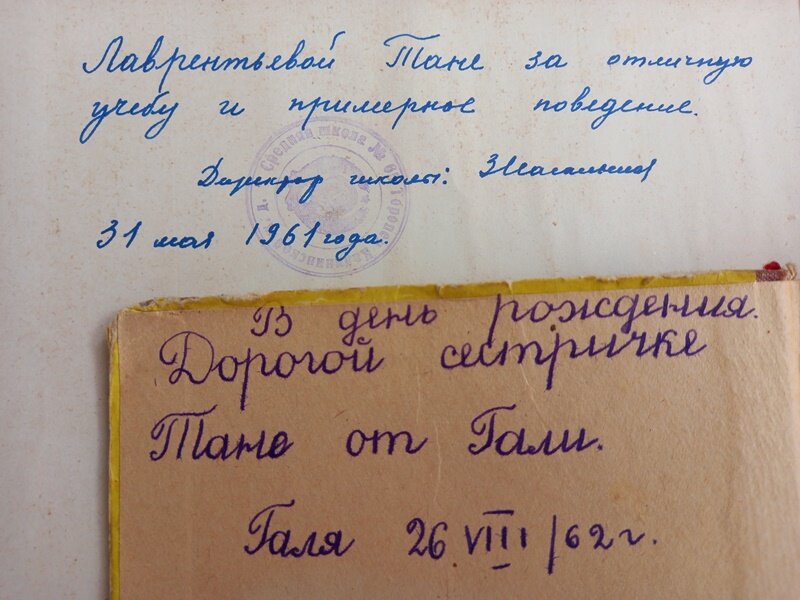 Лаврентьевой Тане за отличную
учебу и примерное поведение.
Директор школы:
31 мая 1961 года.
Средняя школа №
В день рождения.
Дорогой сестричке
Тане от Гали.
Галя 26 VIII/62 г.